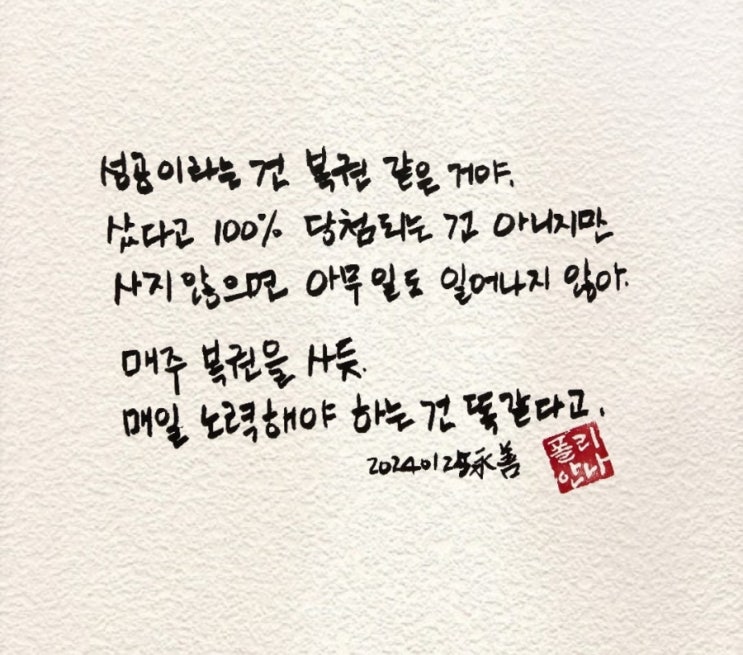 성공이라는 건 복권 같은 거야.
샀다고 100% 당첨되는 건 아니지만
사지 않으면 아무 일도 일어나지 않아.
매주 복권을 사듯.
매일 노력해야 하는 건 똑같다고.
20240125 永善
폴리
안나